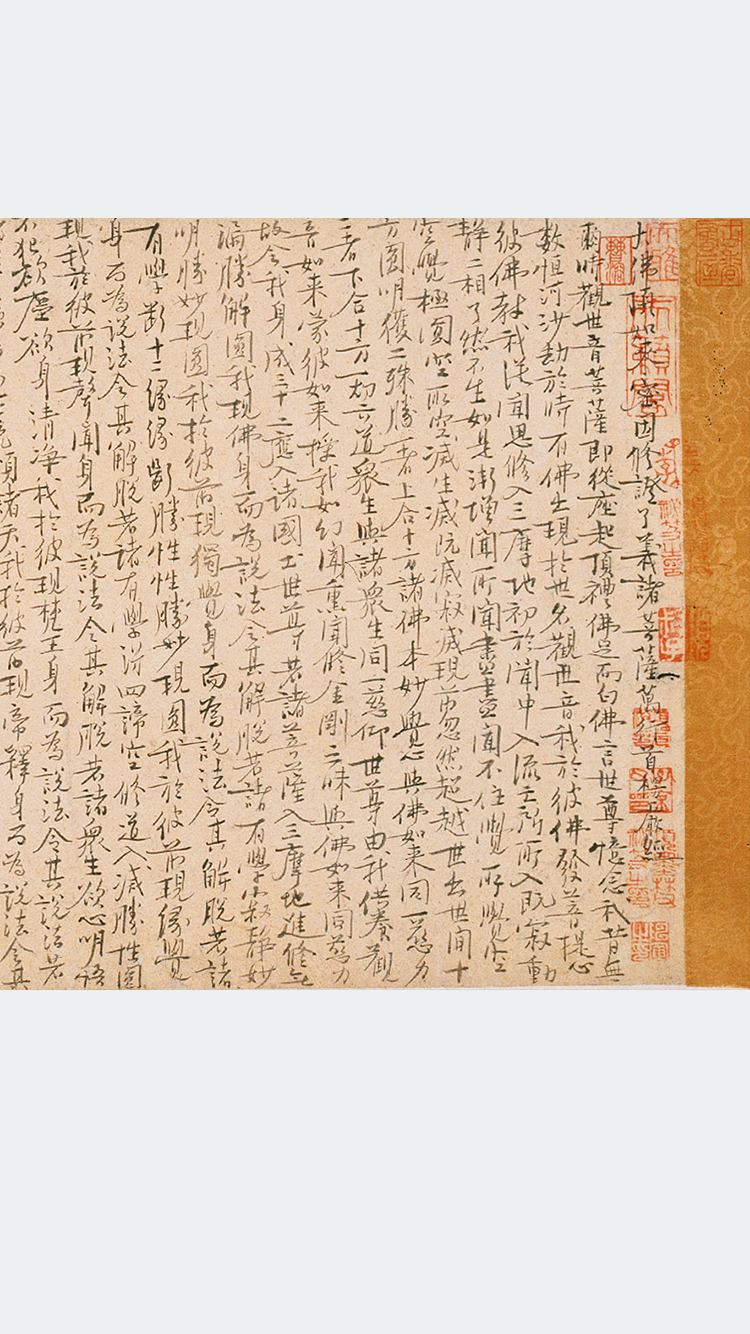 大佛頂如來密因修證了義諸菩薩萬行首楞嚴經
爾時觀世音菩薩即從座起頂禮佛足而白佛言世尊憶念我昔無
數恒河沙劫於時有佛出現於世名觀世音我於彼佛發菩提心
彼佛教我從聞思修入三摩地初於聞中入流亡所所入既寂動
靜二相了然不生如是漸增聞所聞盡盡聞不住覺所覺空
空覺極圓空所空滅生滅既滅寂滅現前忽然超越世出世間十
方圓明獲二殊勝一者上合十方諸佛本妙覺心與佛如來同一慈力
二者下合十方一切六道衆生與諸衆生同一悲仰世尊由我供養觀
音如來蒙彼如來授我如幻聞熏聞修金剛三昧與佛如來同慈力
故令我身成三十二應入諸國土世尊若諸菩薩入三摩地進修無
漏勝解圓我現佛身而為說法令其解脫若諸有學寂靜妙
明勝妙現圓我於彼前現獨覺身而為說法令其解脫若諸
有學斷十二緣緣斷勝性性勝妙現圓我於彼前現緣覺
身而為說法令其解脫若諸有學得四諦空修道入滅勝性圓
現我於彼前現聲聞身而為說法令其解脫若諸衆生欲心明悟
不犯欲塵欲身清淨我於彼現梵王身而為說法令其說法若
領諸天我於彼前現帝釋身而為說法令其